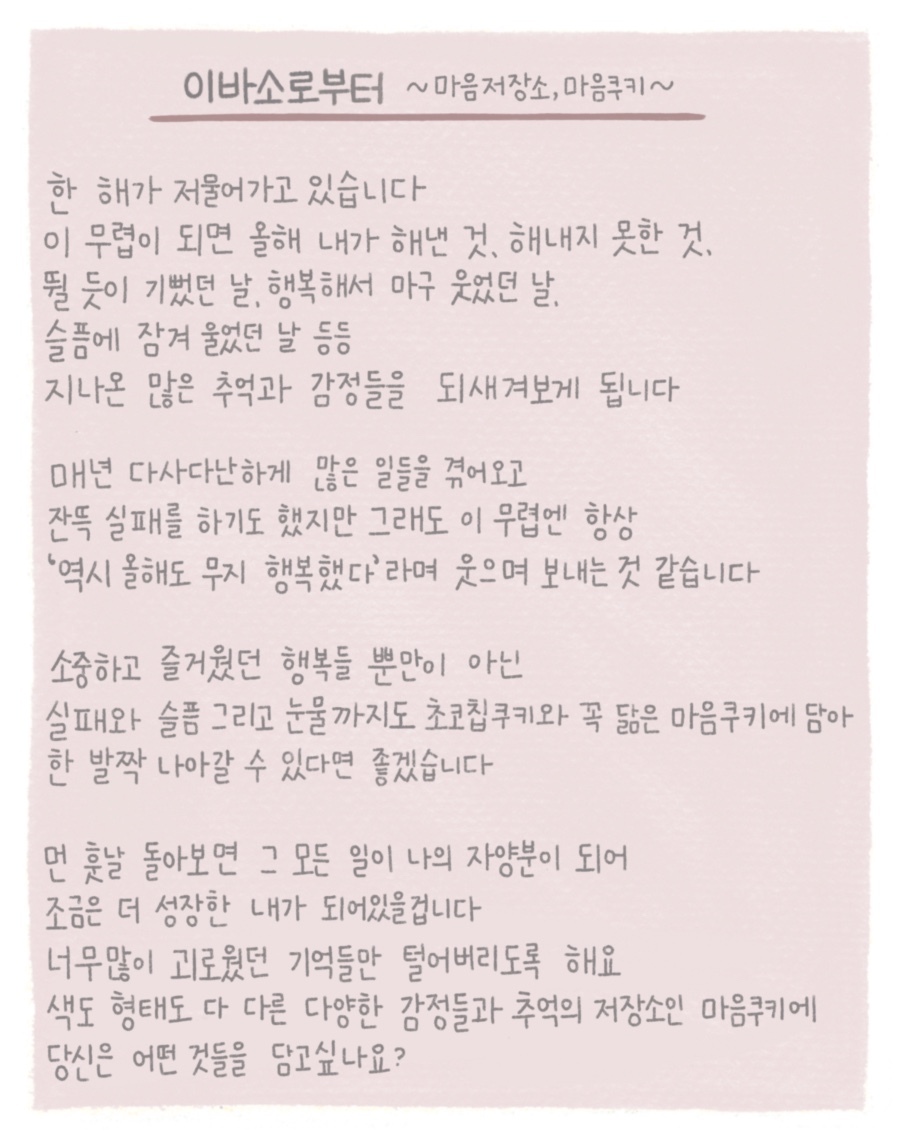 이바소로부터 ~마음저장소,마음쿠키~
한 해가 저물어가고 있습니다
이 무렵이 되면 올해 내가 해낸 것, 해내지 못한 것,
뛸 듯이 기뻤던 날, 행복해서 마구 웃었던 날,
슬픔에 잠겨 울었던 날 등등
지나온 많은 추억과 감정들을 되새겨보게 됩니다
매년 다사다난하게 많은 일들을 겪어오고
잔뜩 실패를 하기도 했지만 그래도 이 무렵엔 항상
‘역시 올해도 무지 행복했다’라며 웃으며 보내는 것 같습니다
소중하고 즐거웠던 행복들 뿐만이 아닌
실패와 슬픔 그리고 눈물까지도 초코칩쿠키와 꼭 닮은 마음쿠키에 담아
한 발짝 나아갈 수 있다면 좋겠습니다
먼 훗날 돌아보면 그 모든 일이 나의 자양분이 되어
조금은 더 성장한 내가 되어있을겁니다
너무많이 괴로웠던 기억들만 털어버리도록 해요
색도 형태도 다 다른 다양한 감정들과 추억의 저장소인 마음쿠키에
당신은 어떤 것들을 담고싶나요?